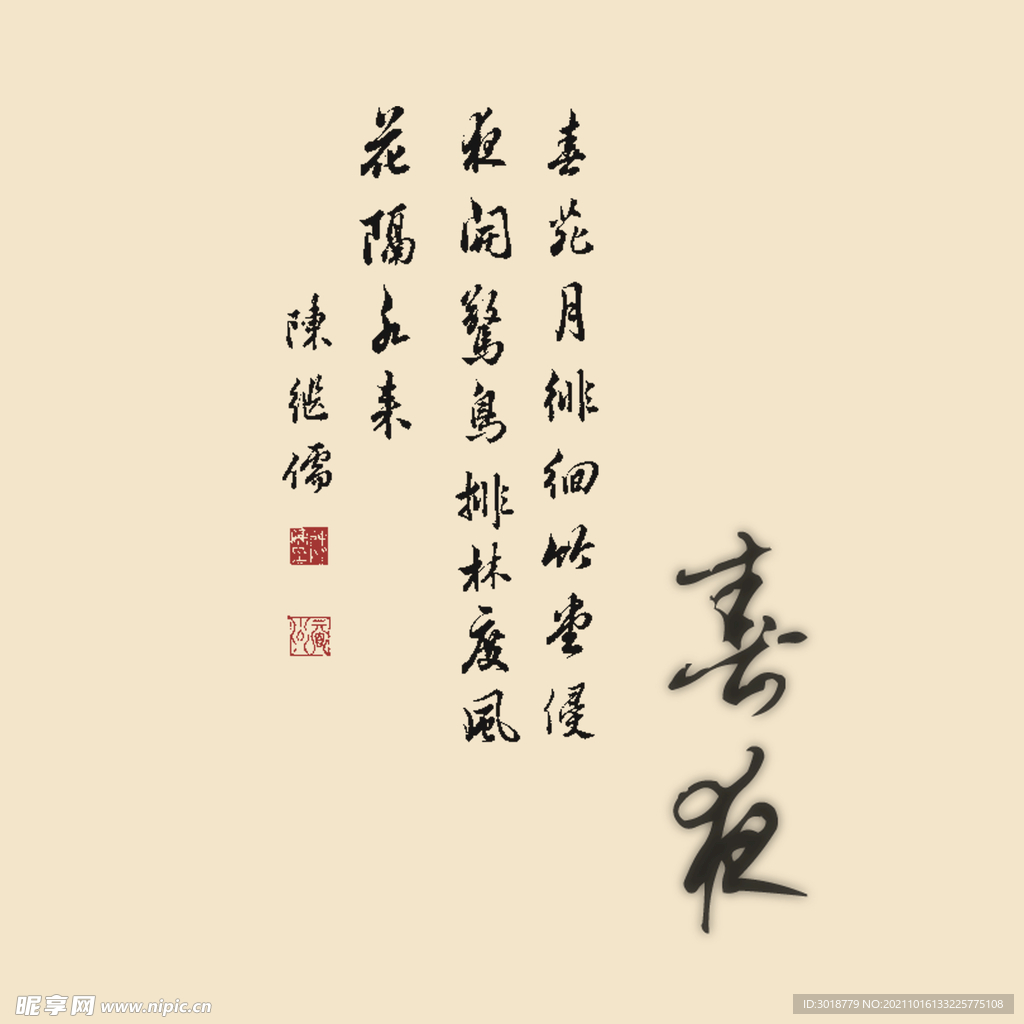 春夜
春苑月徘徊竹堂侵
夜開驚鳥排林度風
花隔水来
陳継儒
昵享网 www.nipic.cn
ID:3018779 NO:20211016133225775108